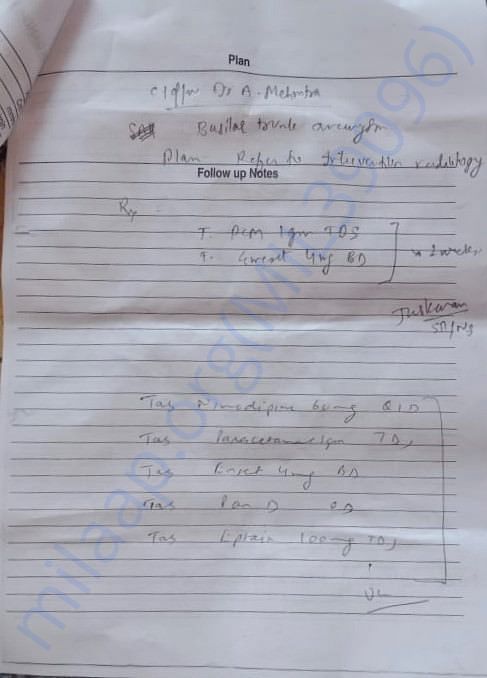 Plan
c/f/w Dr A. Mehrotra
SAH Basilar trunk aneurysm
Plan Refer to Intervention radiology
Follow up Notes
Rx
T. PCM 1gm TDS
T. Emset 4mg BD
2 weeks
SR/NS
Tab Nimodipine 60mg QID
Tab Paracetamol 1gm TDS
Tab Emset 4mg BD
Tab Pan D OD
Tab Eptoin 100mg TDS
milaap.org(MIL39096)